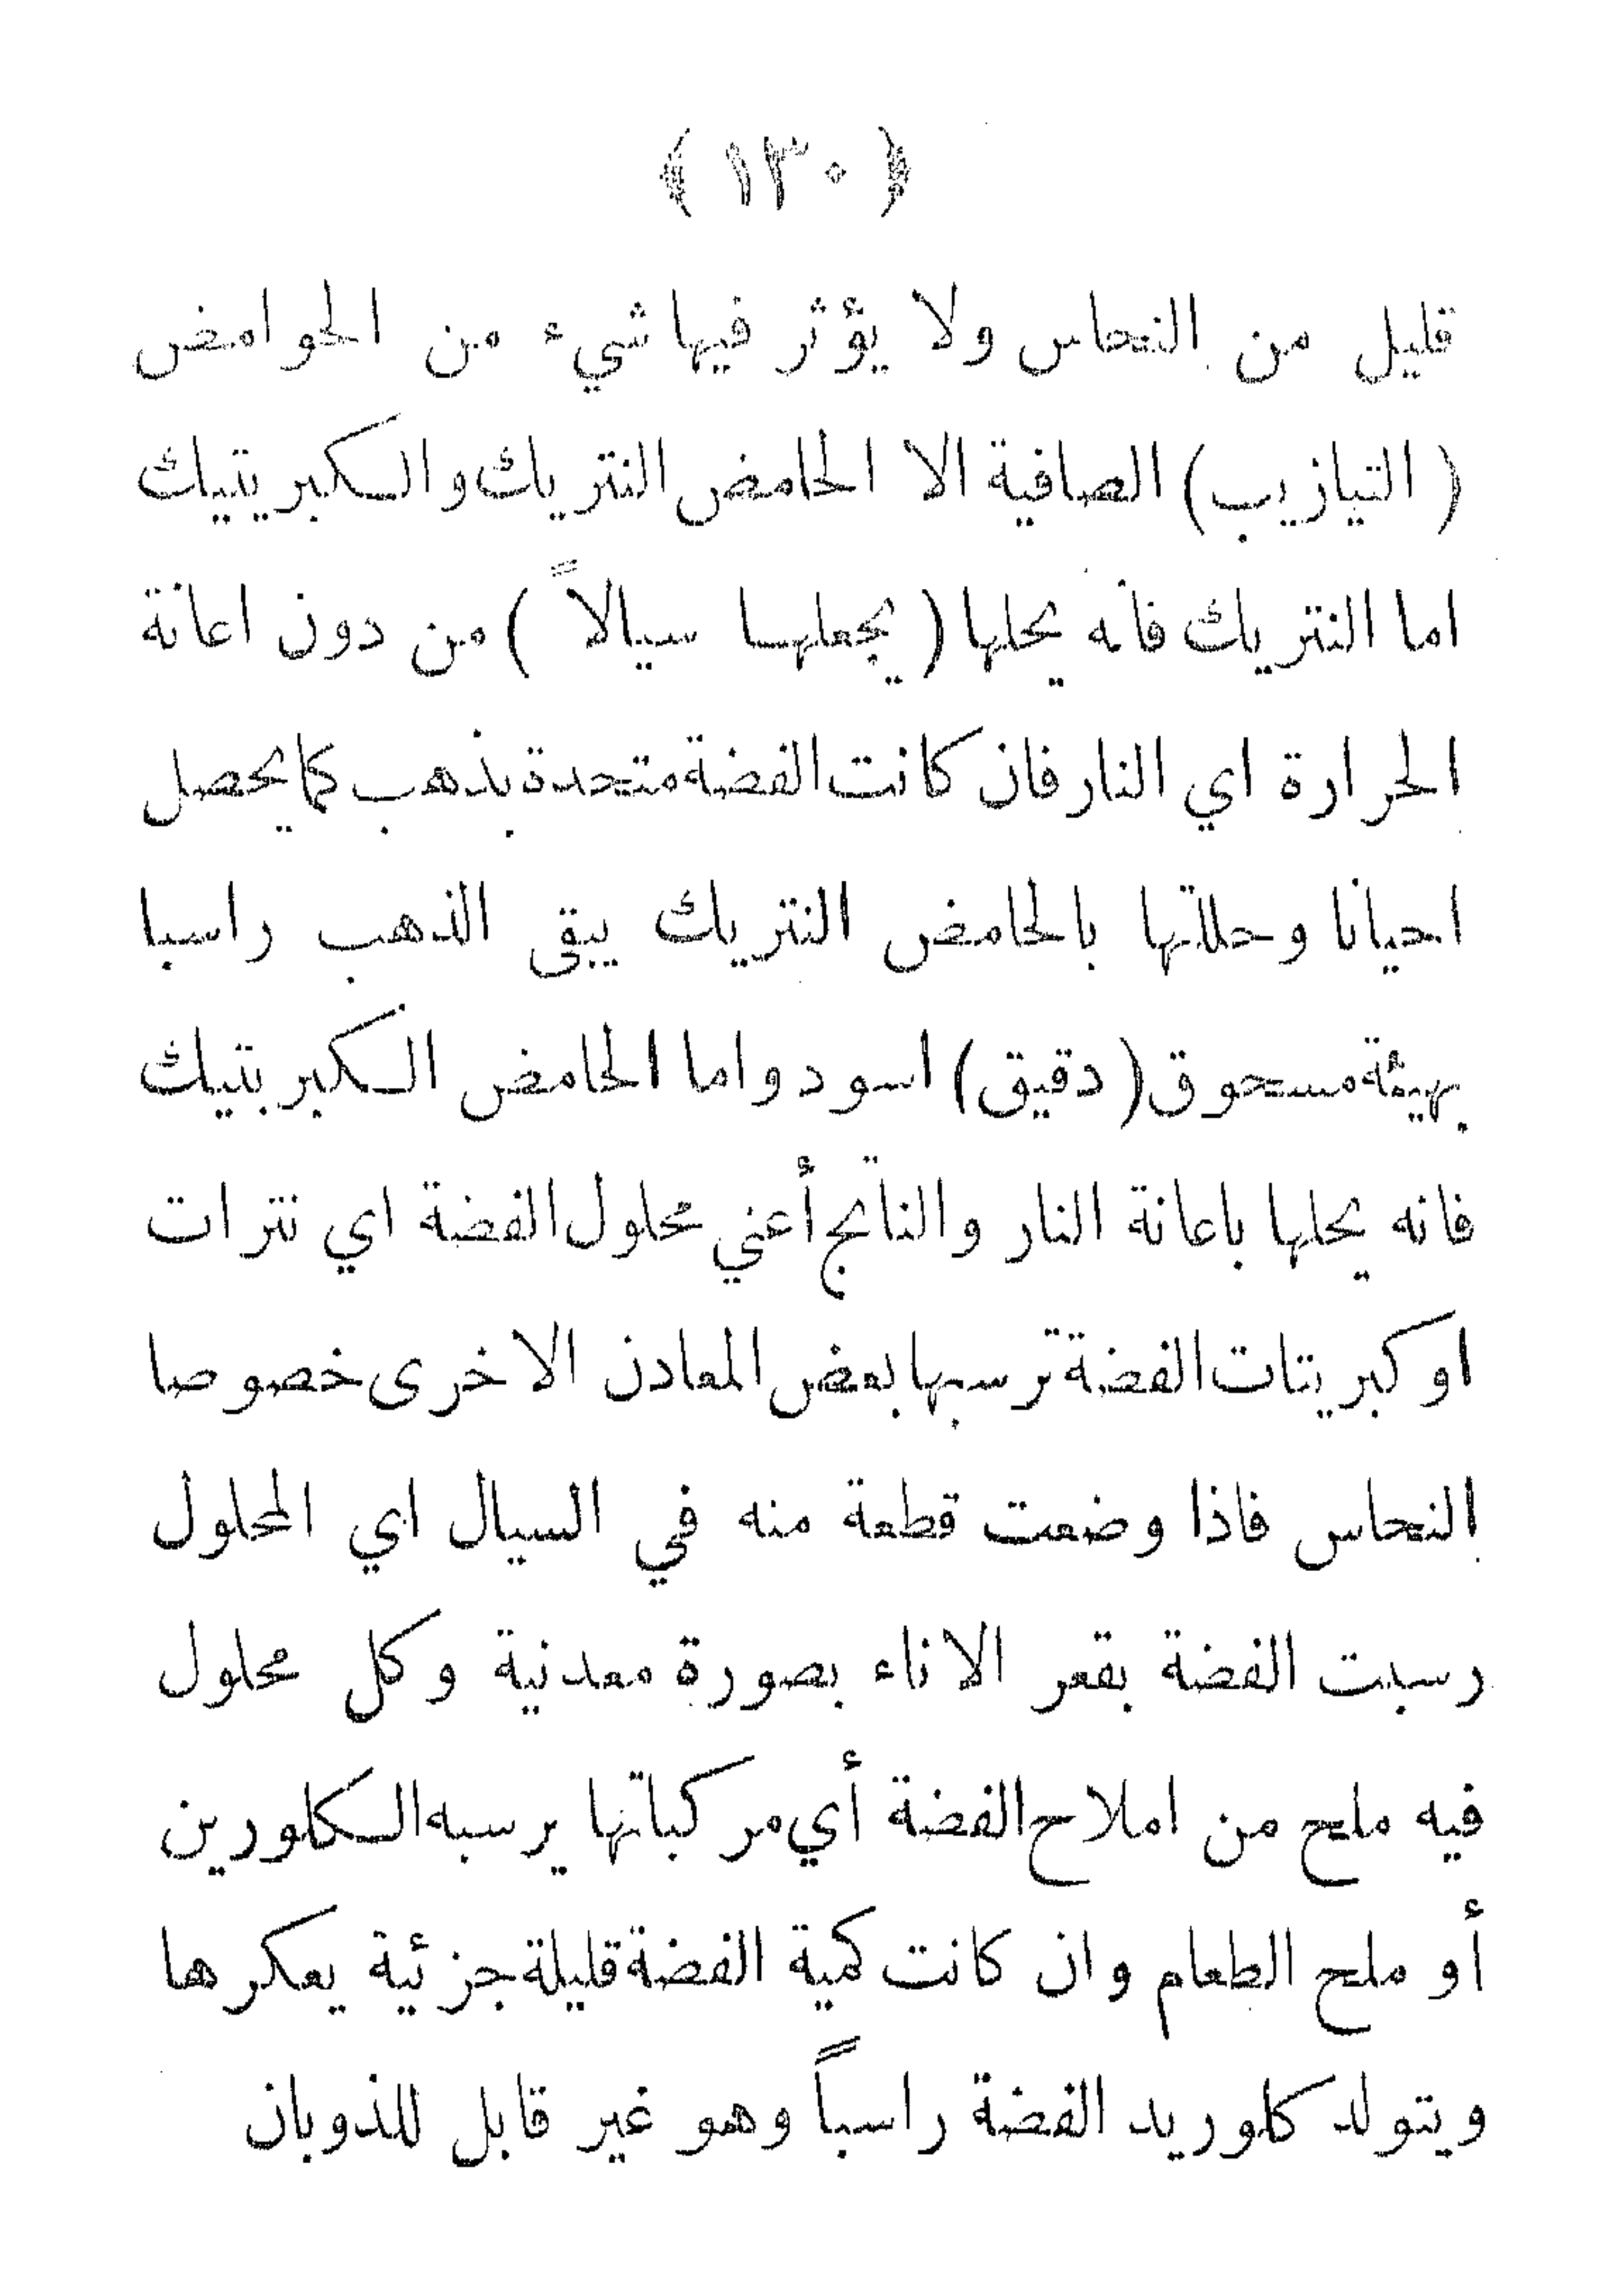 ﴿ ١٣٠ ﴾
قليل من النحاس ولا يؤثر فيها شيء من الحوامض
( التيازيب ) الصافية الا الحامض النتريك والكبريتيك
اما النتريك فانه يحلها ( يجعلها سيالاً ) من دون اعانة
الحرارة اي النار فان كانت الفضة متحدة بذهب كما يحصل
احيانا وحللتها بالحامض النتريك يبقى الذهب راسبا
بهيئة مسحوق ( دقيق ) اسود واما الحامض الكبريتيك
فانه يحلها باعانة النار والناتج أعني محلول الفضة اي نترات
او كبريتات الفضة ترسبها بعض المعادن الاخرى خصوصا
النحاس فاذا وضعت قطعة منه في السيال اي المحلول
رسبت الفضة بقعر الاناء بصورة معدنية وكل محلول
فيه ملح من املاح الفضة أي مركباتها يرسبه الكلورين
أو ملح الطعام وان كانت كمية الفضة قليلة جزئية يعكرها
ويتولد كلوريد الفضة راسباً وهو غير قابل للذوبان